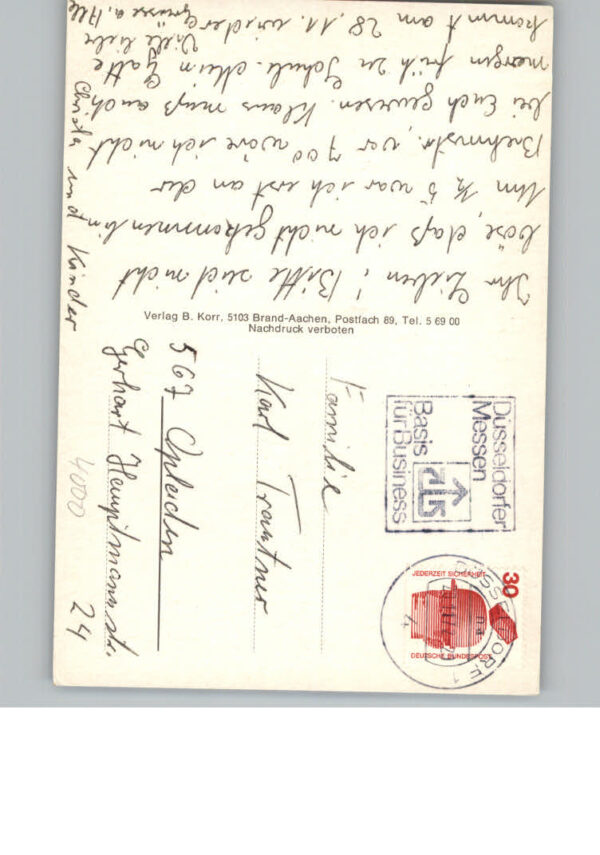 Ihr Lieben! Bitte seid nicht
böse, daß ich nicht gekommen bin.
Um ½ 5 war ich erst an der
Brehmstr., vor 7 00 wäre ich nicht
bei Euch gewesen. Klaus muß auch
morgen früh zu Schule. Mein Gatte
kommt am 28.11. wieder.
Viele liebe
Grüsse a. Alle
Christa und Kinder
Verlag B. Korr, 5103 Brand-Aachen, Postfach 89, Tel. 5 69 00
Nachdruck verboten
Düsseldorfer
Messen
Basis
für Business
30
JEDERZEIT SICHERHEIT
DEUTSCHE BUNDESPOST
DÜSSELDORF 1
Familie
Karl Trantner
567 Opladen
Gerhart Hauptmannstr.
24
4000